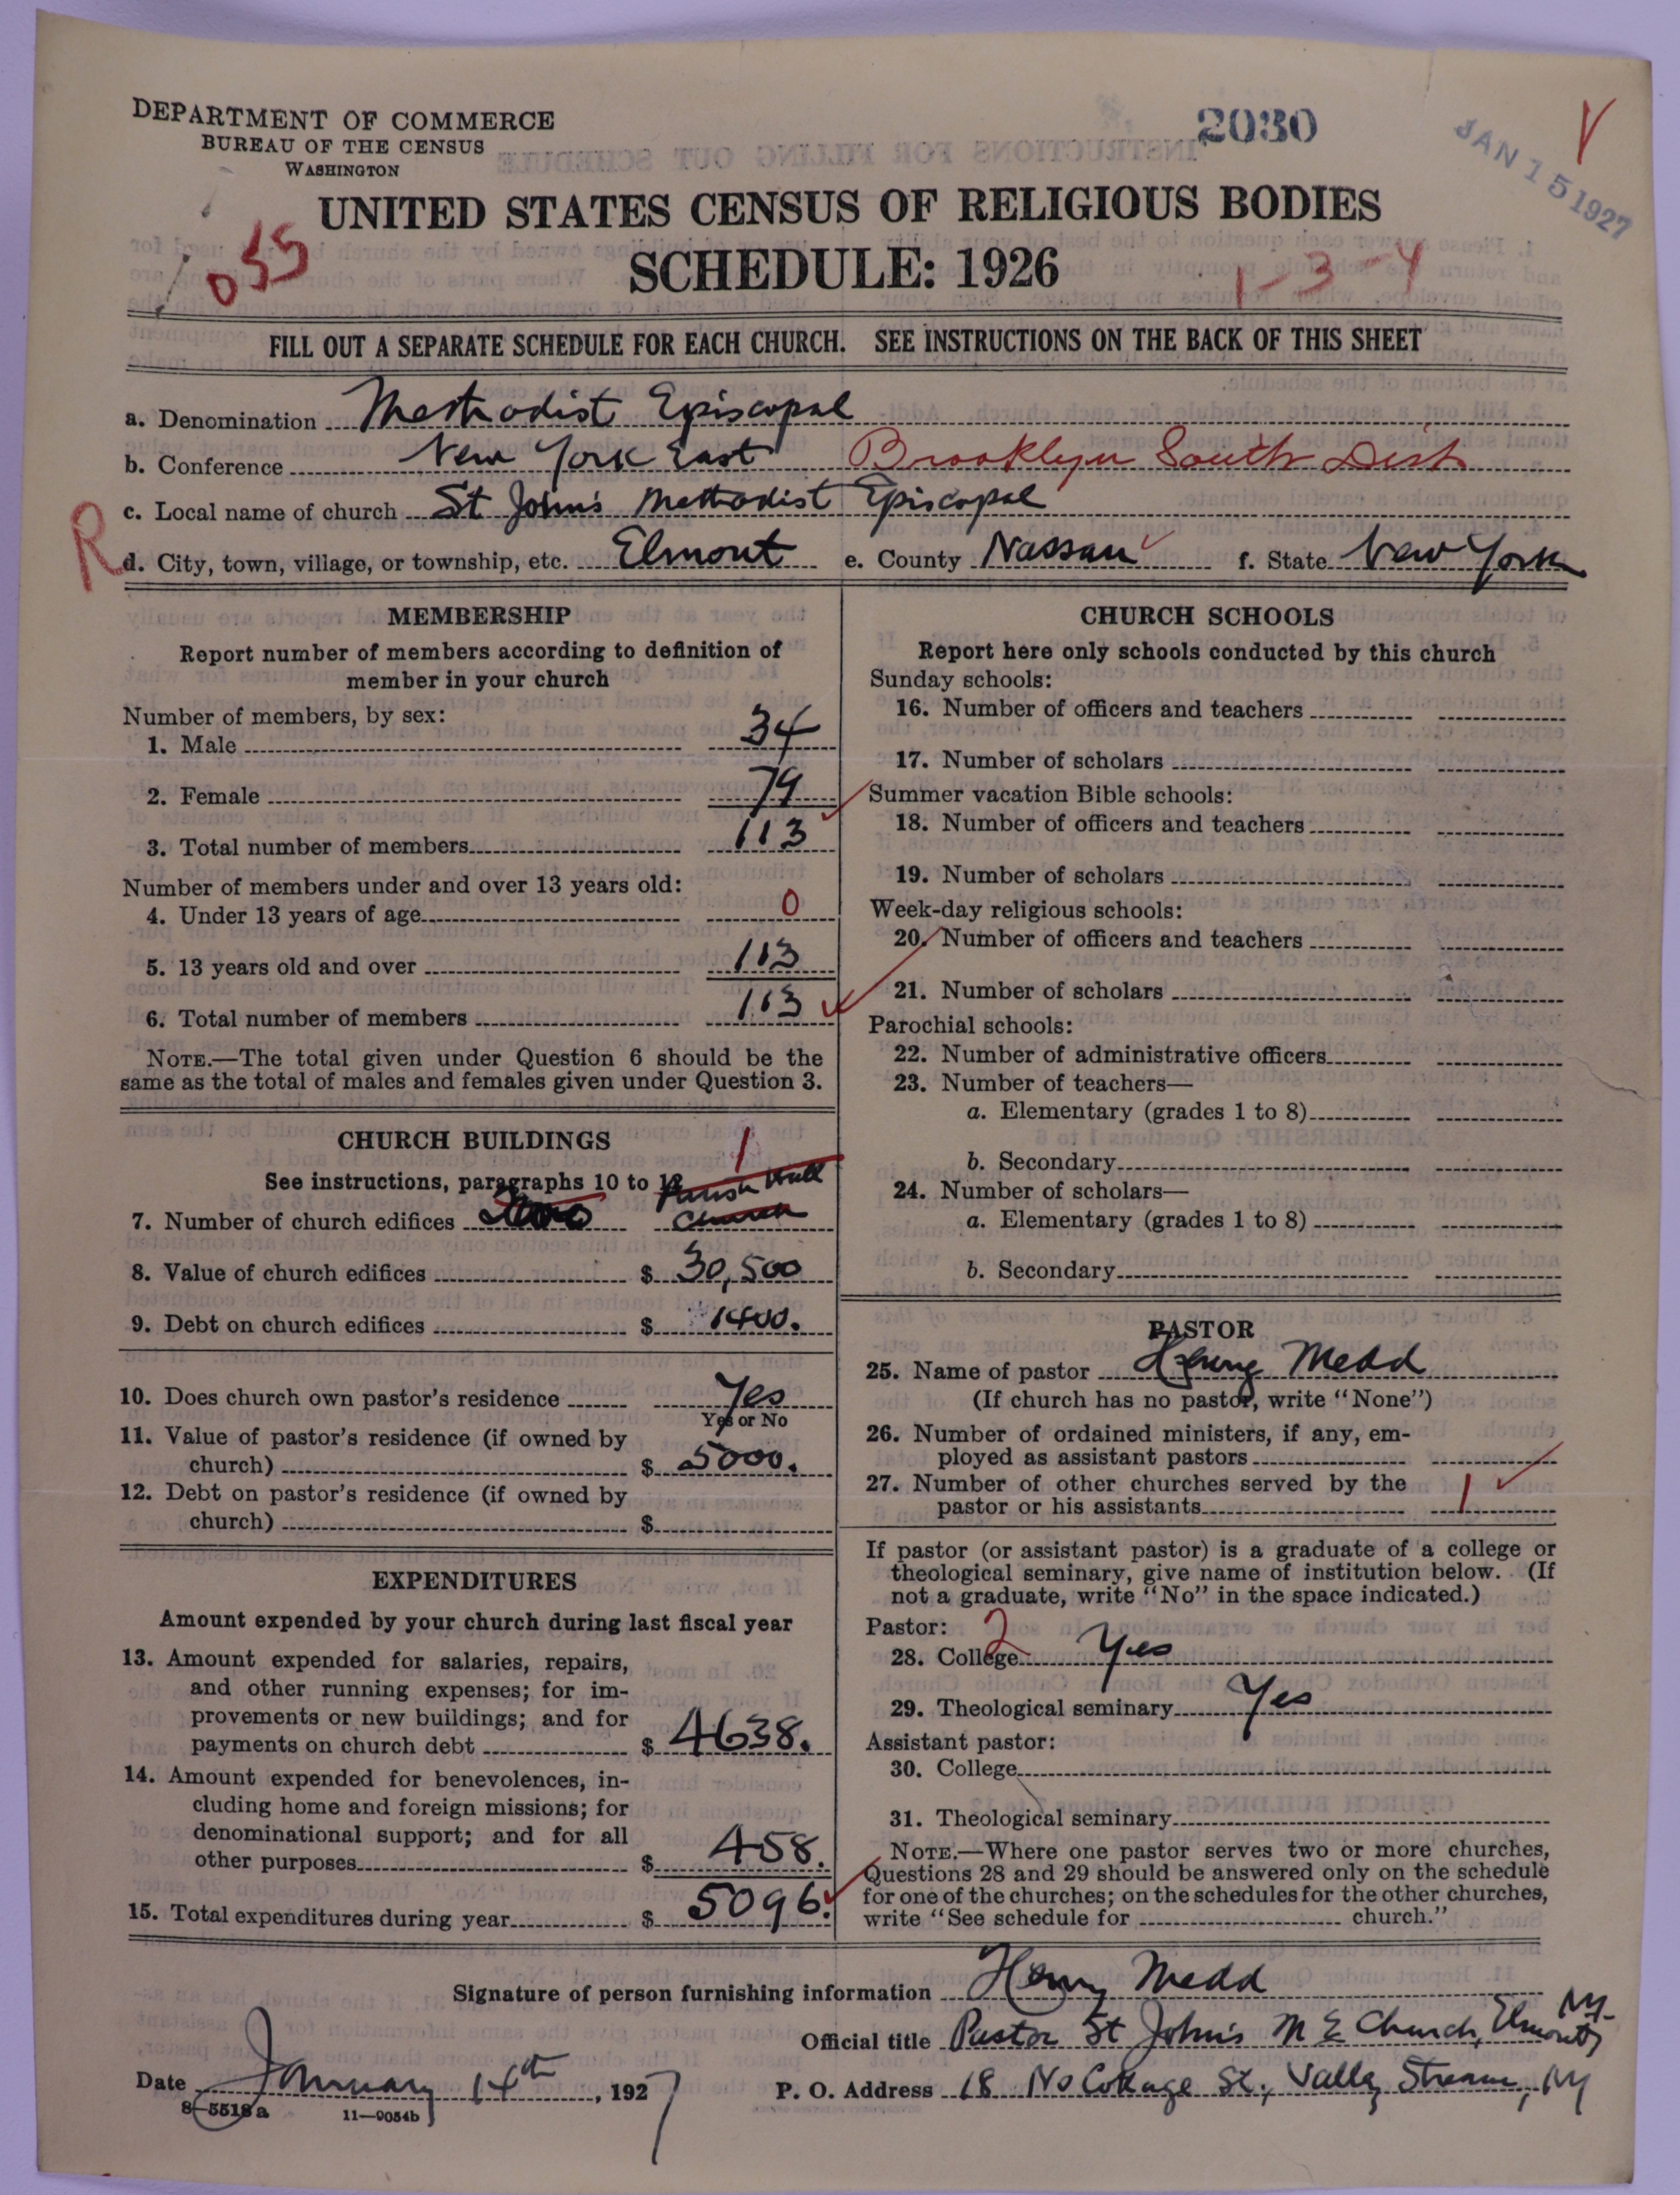 DEPARTMENT OF COMMERCE
BUREAU OF THE CENSUS
WASHINGTON
2030
JAN 15 1927
UNITED STATES CENSUS OF RELIGIOUS BODIES
SCHEDULE: 1926
055
1-3-4
FILL OUT A SEPARATE SCHEDULE FOR EACH CHURCH. SEE INSTRUCTIONS ON THE BACK OF THIS SHEET
a. Denomination Methodist Episcopal
b. Conference New York East Brooklyn South Dist
c. Local name of church St John's Methodist Episcopal
R
d. City, town, village, or township, etc. Elmont e. County Nassau f. State New York
MEMBERSHIP
Report number of members according to definition of
member in your church
Number of members, by sex:
1. Male 34
2. Female 79
3. Total number of members 113
Number of members under and over 13 years old:
4. Under 13 years of age 0
5. 13 years old and over 113
6. Total number of members 113
NOTE.—The total given under Question 6 should be the
same as the total of males and females given under Question 3.
CHURCH BUILDINGS
1
See instructions, paragraphs 10 to 12
Parish Hall
7. Number of church edifices Two Church
8. Value of church edifices $ 30,500
9. Debt on church edifices $ 1400.
10. Does church own pastor's residence Yes
Yes or No
11. Value of pastor's residence (if owned by
church) $ 5000.
12. Debt on pastor's residence (if owned by
church) $
EXPENDITURES
Amount expended by your church during last fiscal year
13. Amount expended for salaries, repairs,
and other running expenses; for im-
provements or new buildings; and for
payments on church debt $ 4638.
14. Amount expended for benevolences, in-
cluding home and foreign missions; for
denominational support; and for all
other purposes $ 458.
15. Total expenditures during year $ 5096.
CHURCH SCHOOLS
Report here only schools conducted by this church
Sunday schools:
16. Number of officers and teachers
17. Number of scholars
Summer vacation Bible schools:
18. Number of officers and teachers
19. Number of scholars
Week-day religious schools:
20. Number of officers and teachers
21. Number of scholars
Parochial schools:
22. Number of administrative officers
23. Number of teachers—
a. Elementary (grades 1 to 8)
b. Secondary
24. Number of scholars—
a. Elementary (grades 1 to 8)
b. Secondary
PASTOR
25. Name of pastor Henry Medd
(If church has no pastor, write "None")
26. Number of ordained ministers, if any, em-
ployed as assistant pastors
27. Number of other churches served by the
pastor or his assistants 1
If pastor (or assistant pastor) is a graduate of a college or
theological seminary, give name of institution below. (If
not a graduate, write "No" in the space indicated.)
Pastor: 2
28. College Yes
29. Theological seminary Yes
Assistant pastor:
30. College
31. Theological seminary
NOTE.—Where one pastor serves two or more churches,
Questions 28 and 29 should be answered only on the schedule
for one of the churches; on the schedules for the other churches,
write "See schedule for church."
Signature of person furnishing information Henry Medd
Official title Pastor St John's M E Church, Elmont NY.
Date January 14th, 1927
P. O. Address 18 No Cottage St., Valley Stream, NY
8-5518a 11-9054b